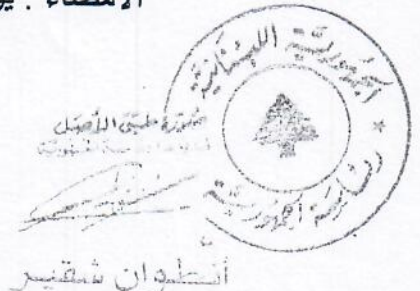 الامضاء : يو
الجمهورية اللبنانية
رئاسة الجمهورية
صورة طبق الأصل
أنطوان شقير